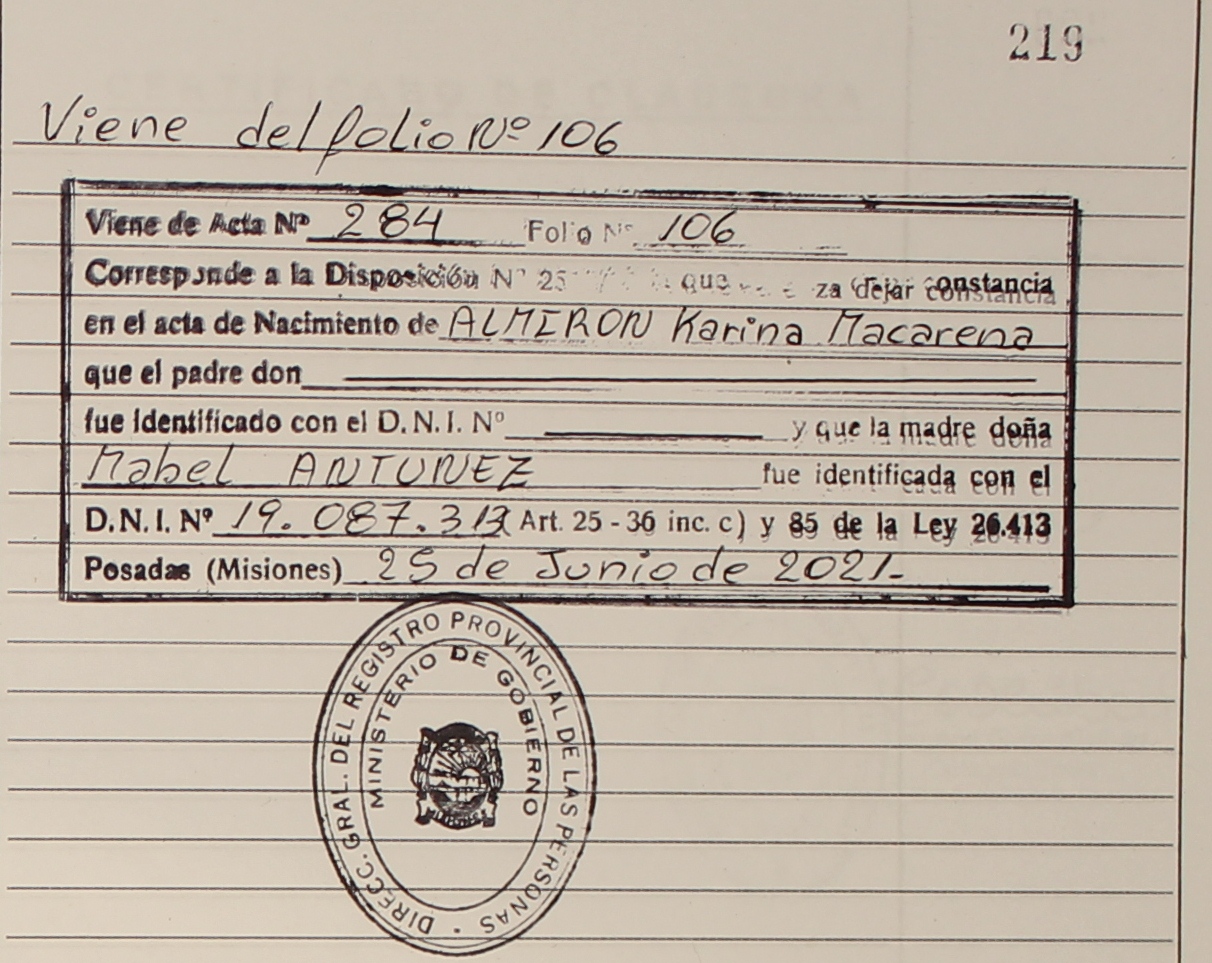 219
Viene del folio Nº 106
Viene de Acta Nº 284 Folio Nº 106
Corresponde a la Disposición Nº 25 que za dejar constancia
en el acta de Nacimiento de ALMIRON Karina Macarena
que el padre don
fue identificado con el D.N.I. Nº y que la madre doña
Mabel ANTUNEZ fue identificada con el
D.N.I. Nº 19.087.313 (Art. 25 - 36 inc. c) y 85 de la Ley 26.413
Posadas (Misiones) 25 de Junio de 2021.-
DIRECC. GRAL. DEL REGISTRO PROVINCIAL DE LAS PERSONAS -
MINISTERIO DE GOBIERNO